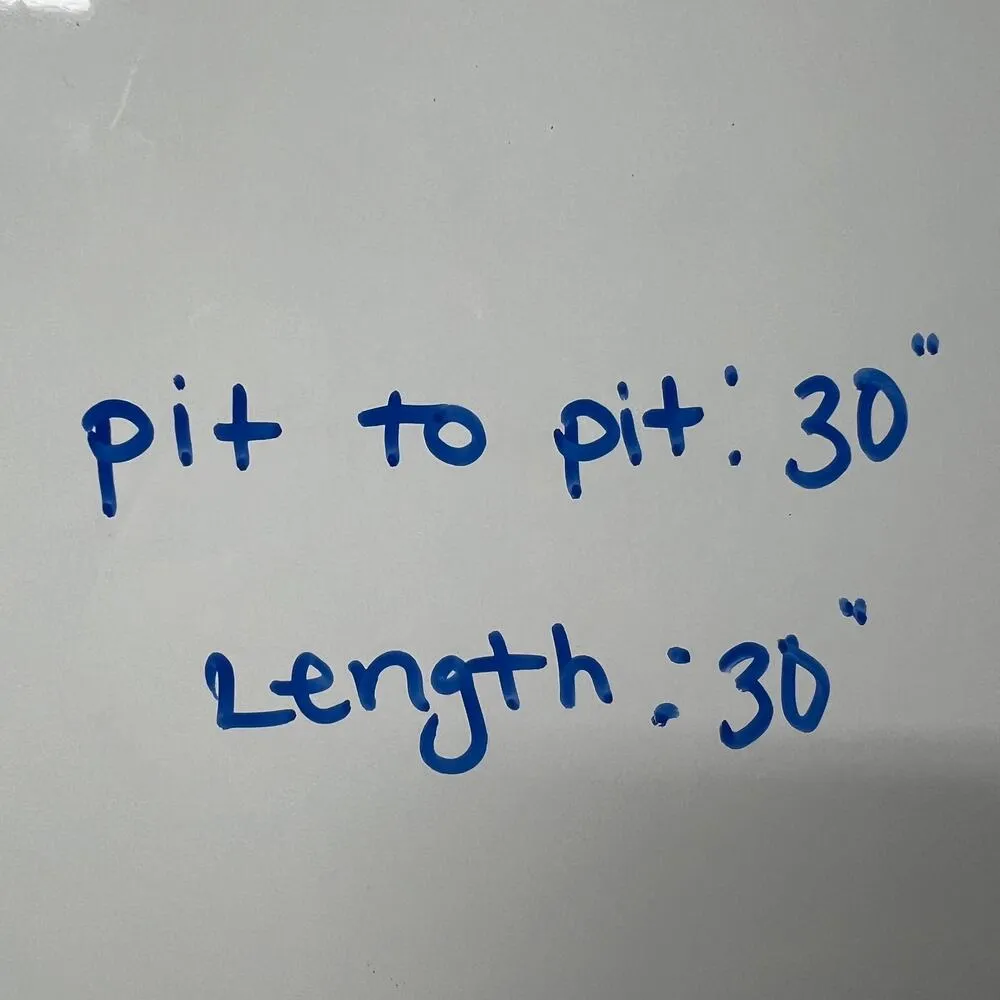 pit to pit: 30"
Length: 30"